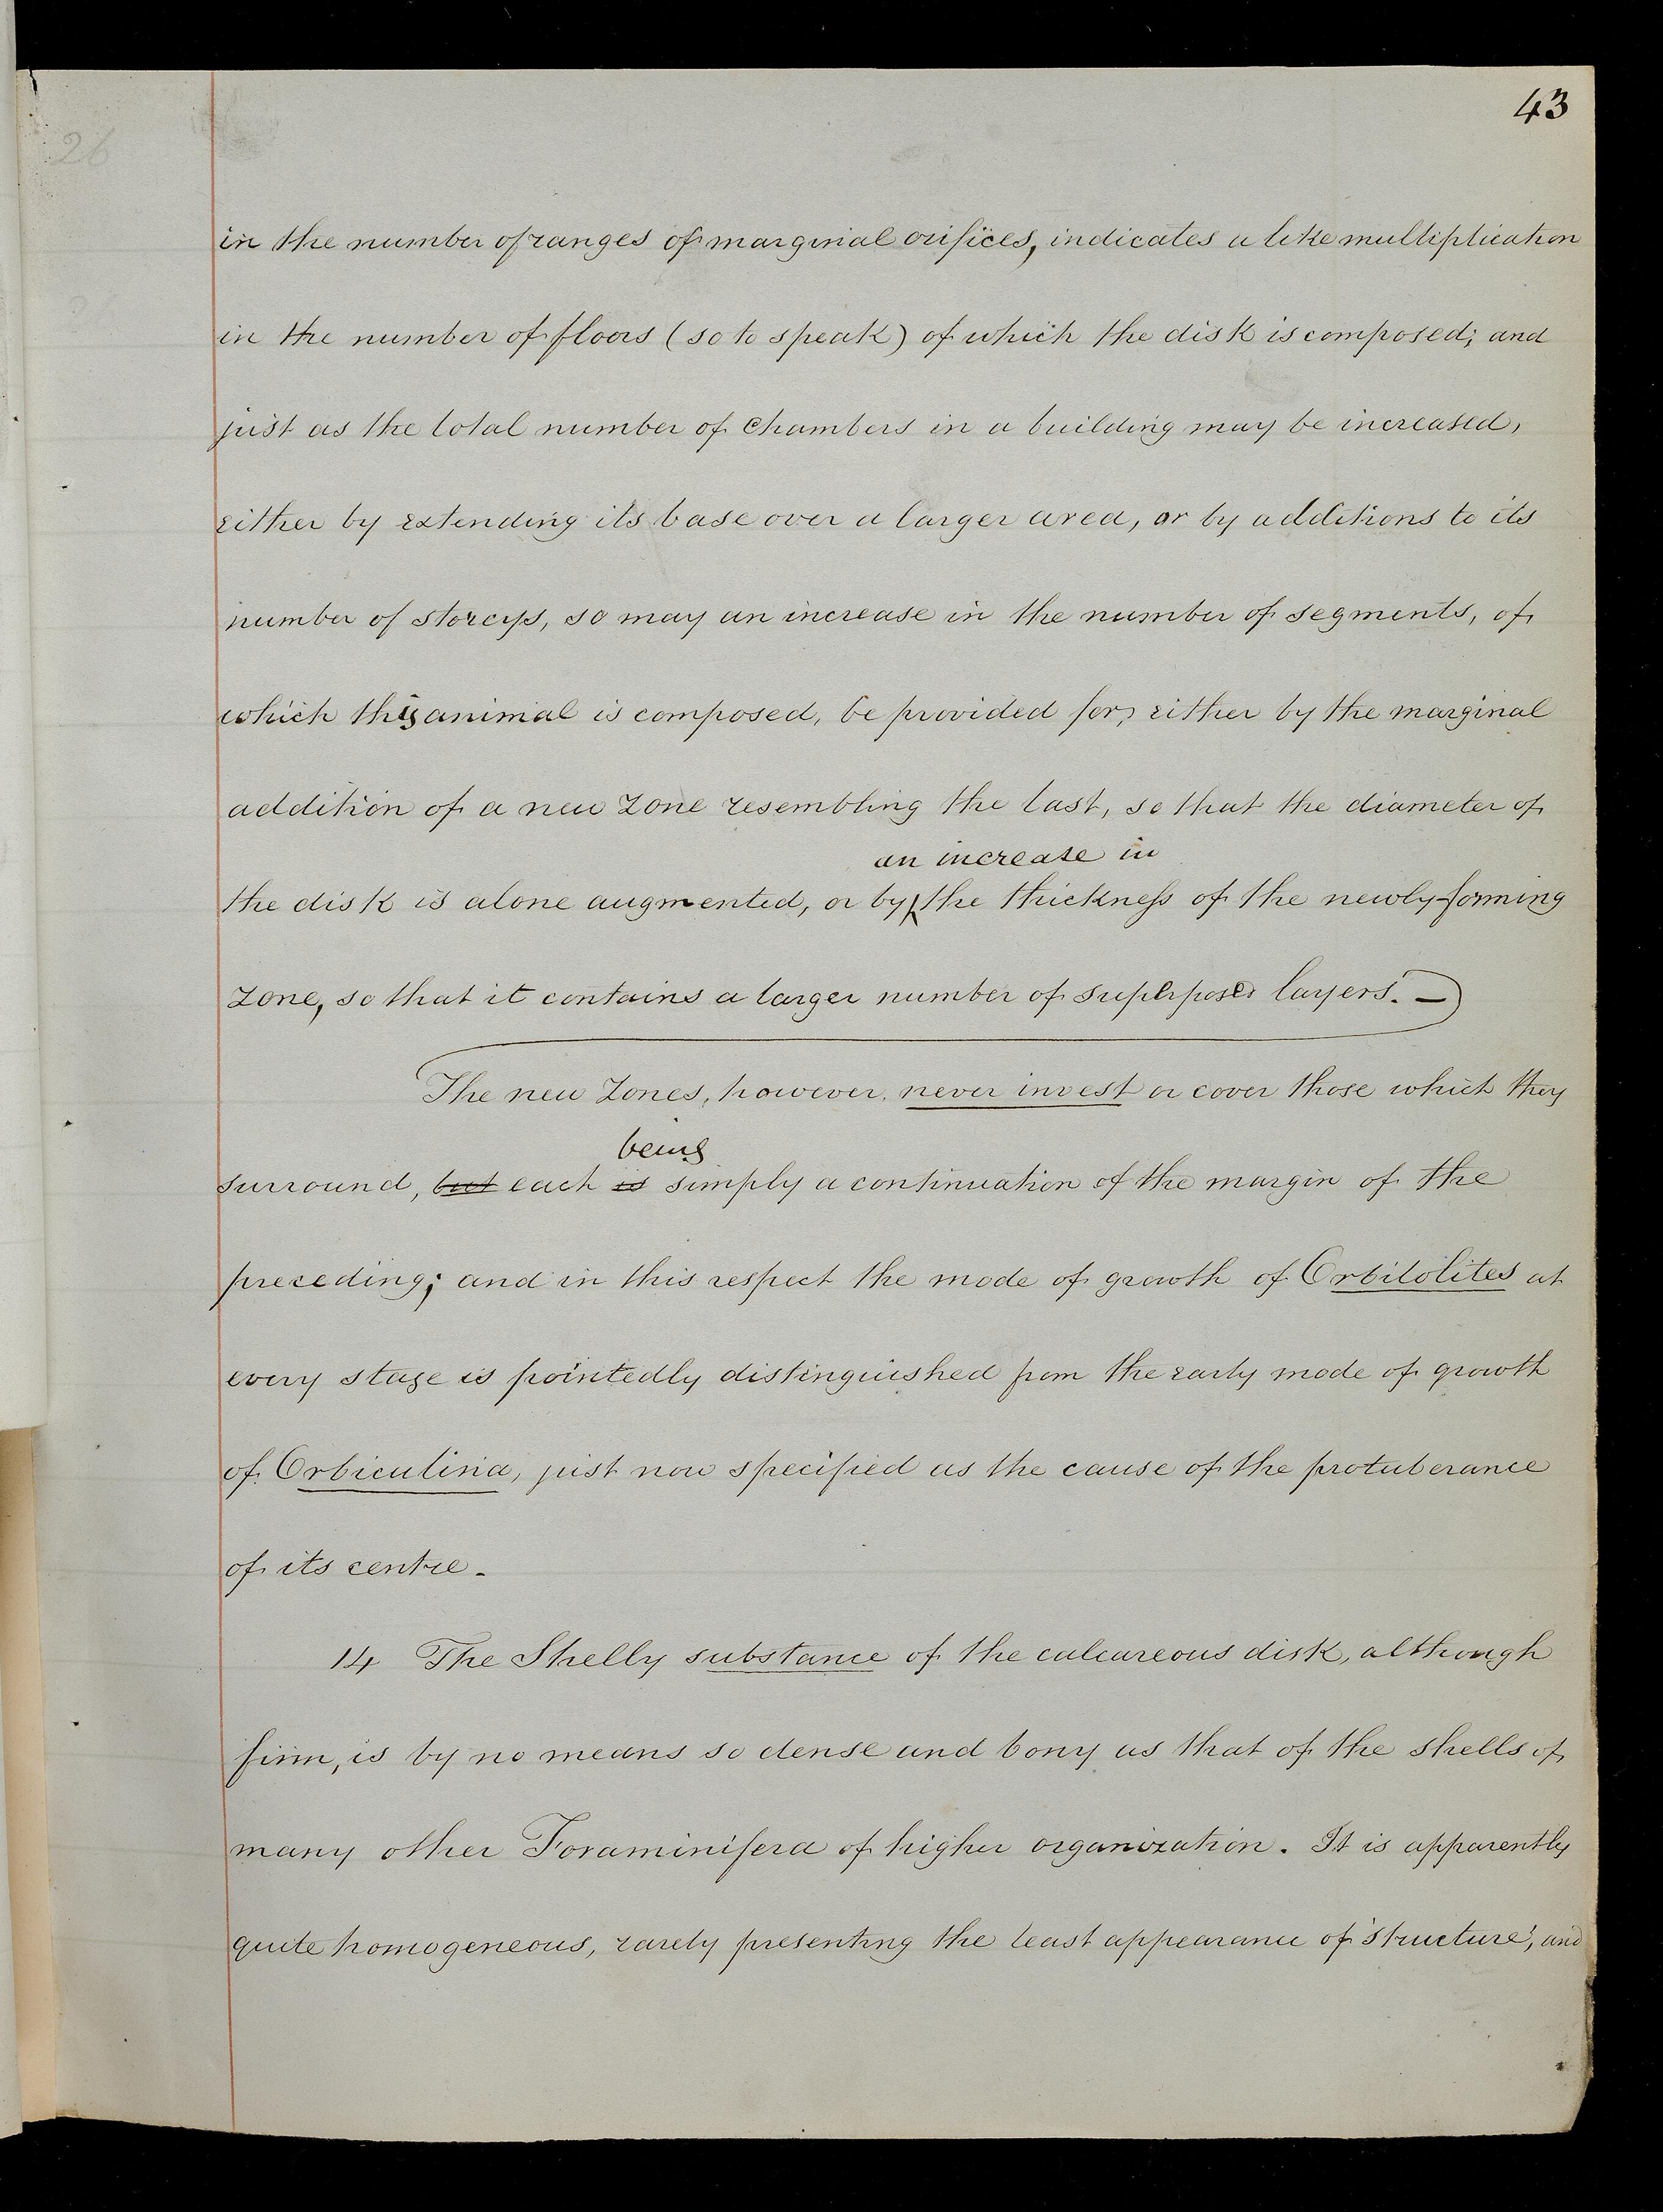 43
26
in the number of ranges of marginal orifices, indicates a like multiplication
in the number of floors (so to speak) of which the disk is composed; and
just as the total number of chambers in a building may be increased,
either by extending its base over a larger area, or by additions to its
number of storeys, so may an increase in the number of segments, of
which this animal is composed, be provided for, either by the marginal
addition of a new zone resembling the last, so that the diameter of
an increase in
the disk is alone augmented, or by the thickness of the newly-forming
zone, so that it contains a larger number of superposed layers. —
The new zones, however, never invest or cover those which they
being
surround, but each is simply a continuation of the margin of the
preceding; and in this respect the mode of growth of Orbitolites at
every stage is pointedly distinguished from the early mode of growth
of Orbiculina, just now specified as the cause of the protuberance
of its centre.
14 The Shelly substance of the calcareous disk, although
firm, is by no means so dense and bony as that of the shells of
many other Foraminifera of higher organization. It is apparently
quite homogeneous, rarely presenting the least appearance of 'structure', and